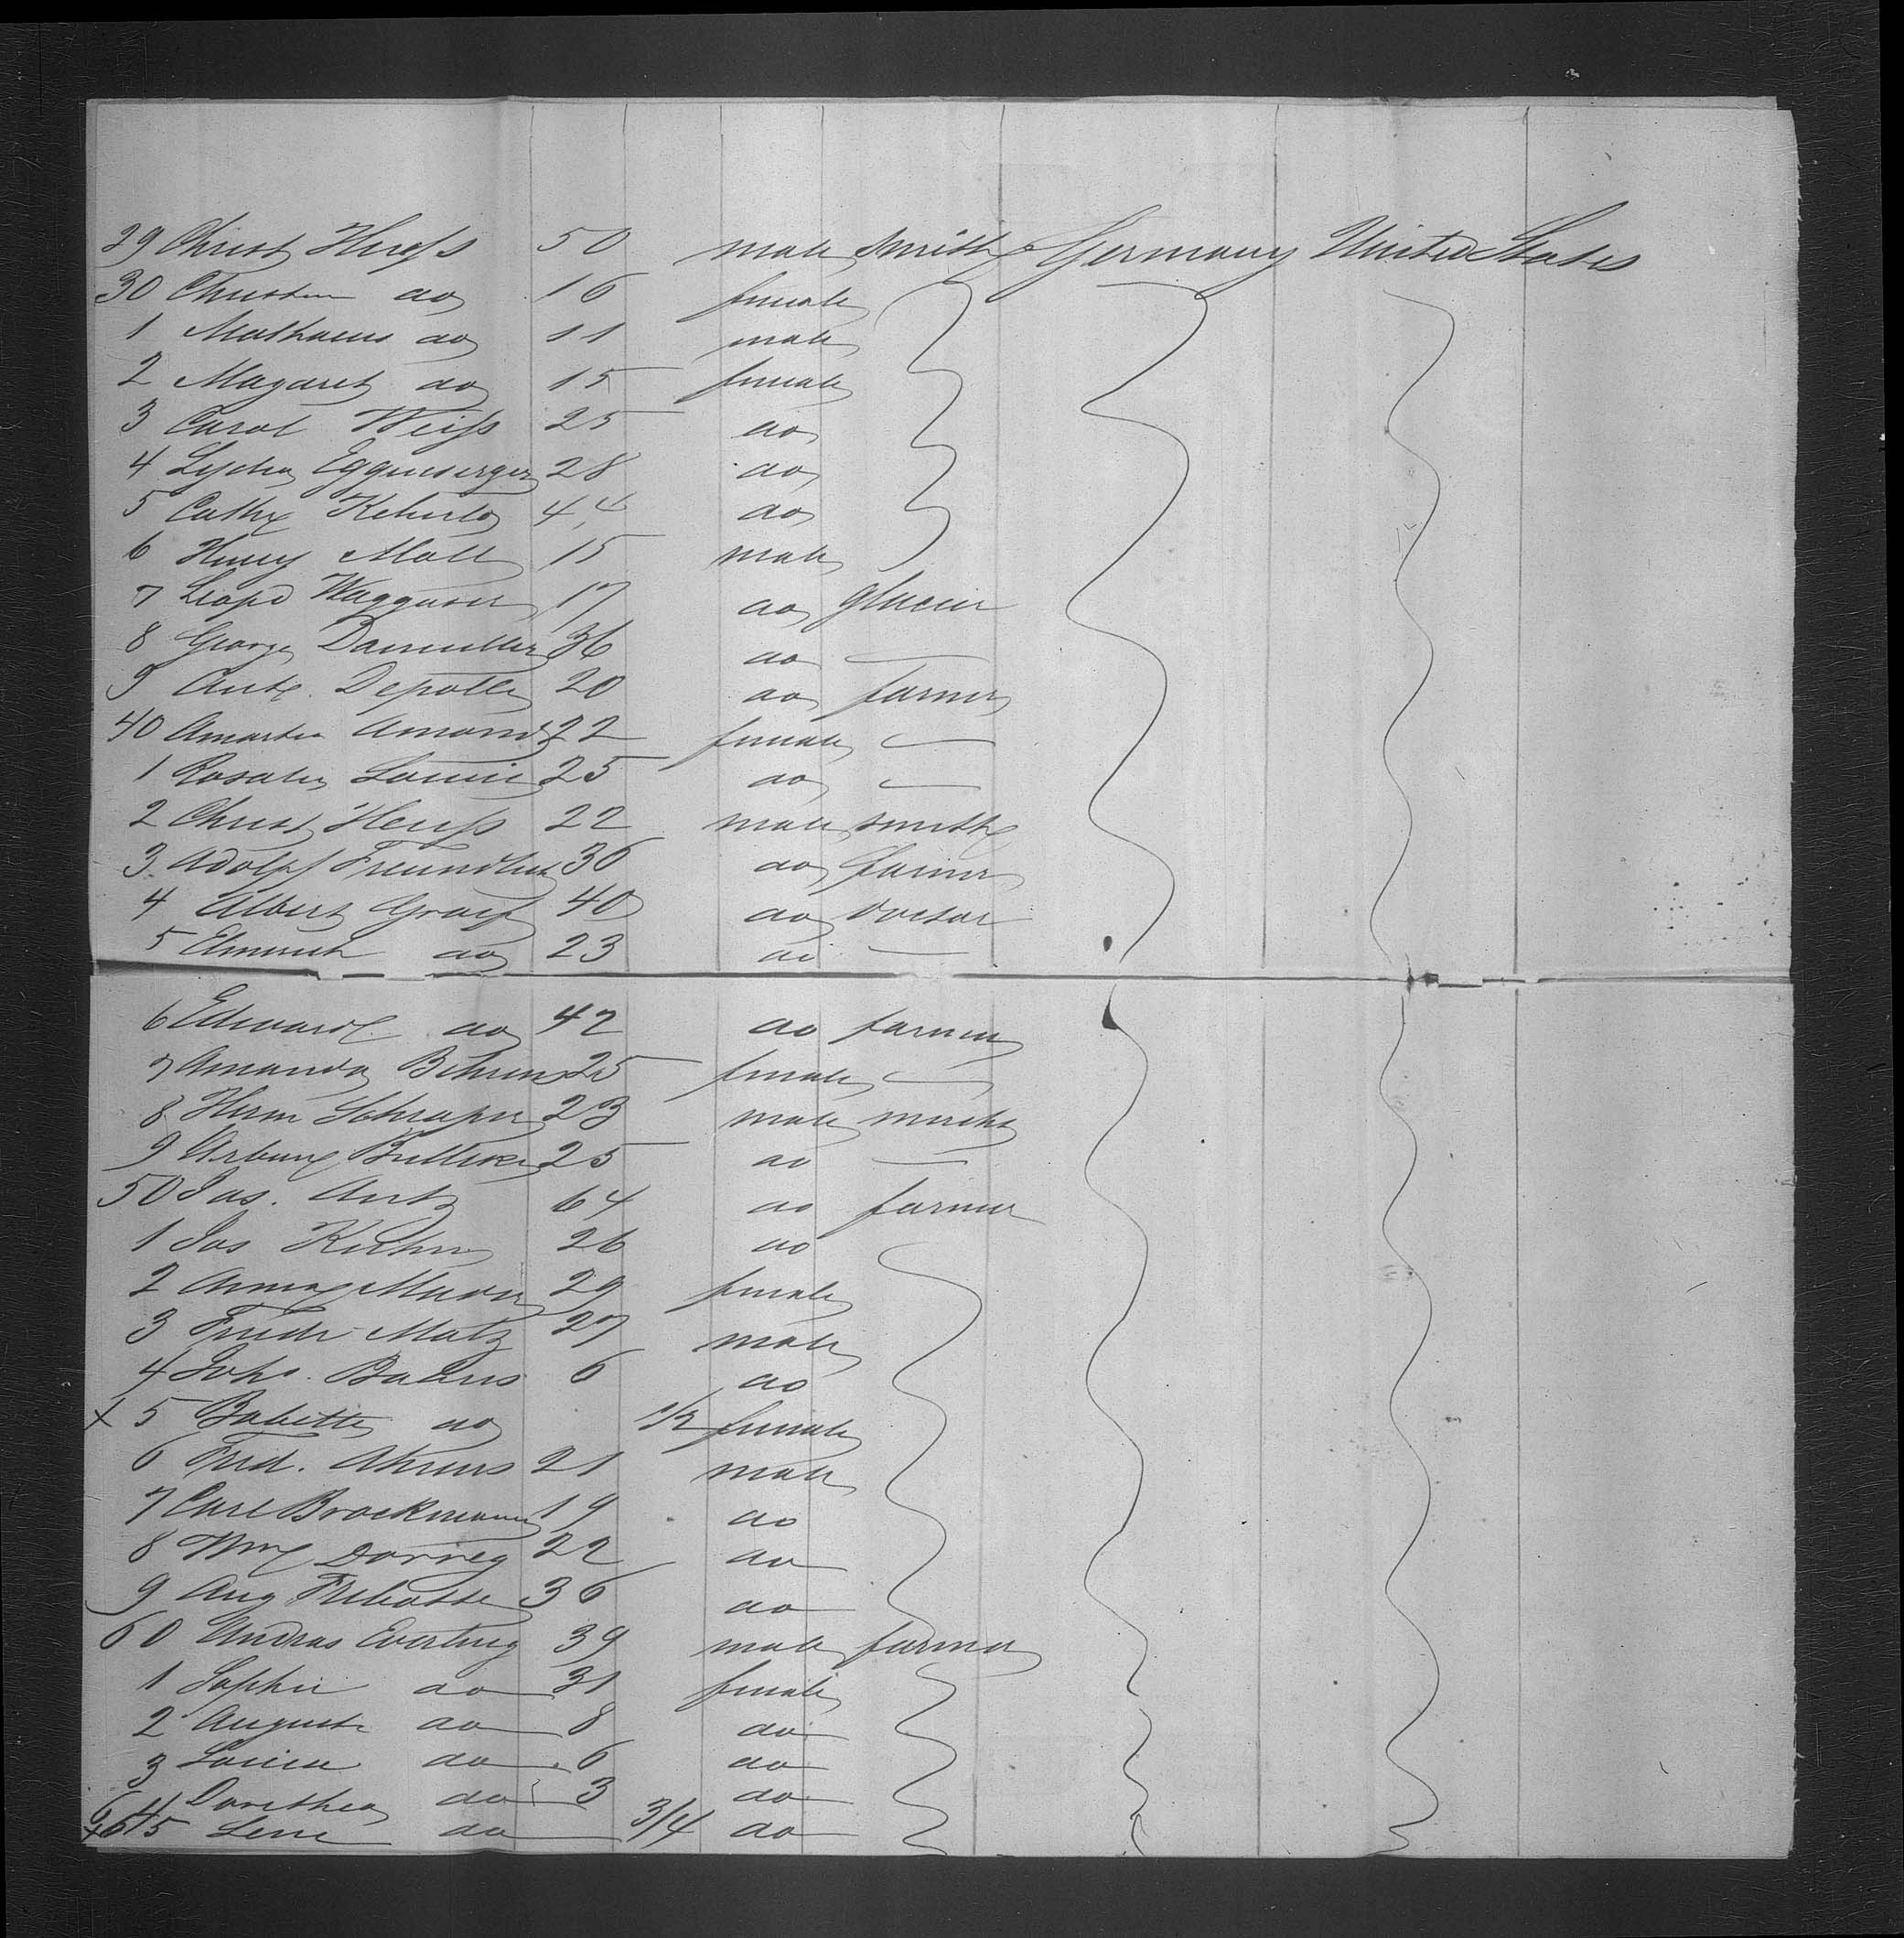 29 Christ Hergß 50 male Smith Germany United States
30 Christin do 16 female
1 Mathaeus do 11 male
2 Magaret do 15 female
3 Carol Weiß 25 do
4 Lydia 28 do
5 Cath 44 do
6 Henry Moll 15 male
7 Leopd Waggoner 17 do glacier
8 George 36 do —
9 Ant. 20 do farmer
40 Amand 22 female —
1 Rosalie 25 do —
2 Christ 22 male smith
3 Adolph Freundlich 36 do farmer
4 Albert Graef 40 do doctor
5 do 23 do —
6 Edward do 42 do farmer
7 Amanda Behrens 25 female —
8 Herm 23 male mercht
9 25 do —
50 Jos. 64 do farmer
1 Jos Kuhn 26 do
2 Anna 29 female
3 Friedr Motz 27 male
4 Joh. 6 do
x 5 Babette do 1/2 female
6 Fred. Ahrens 21 male
7 Carl Brockmann 19 do
8 Wm 22 do
9 Aug 36 do
60 Andreas Everling 39 male farmer
1 Sophie do 31 female
2 Auguste do 8 do
3 Louise do 6 do
64 Dorethea do 3 do
x 65 Lene do 3/4 do